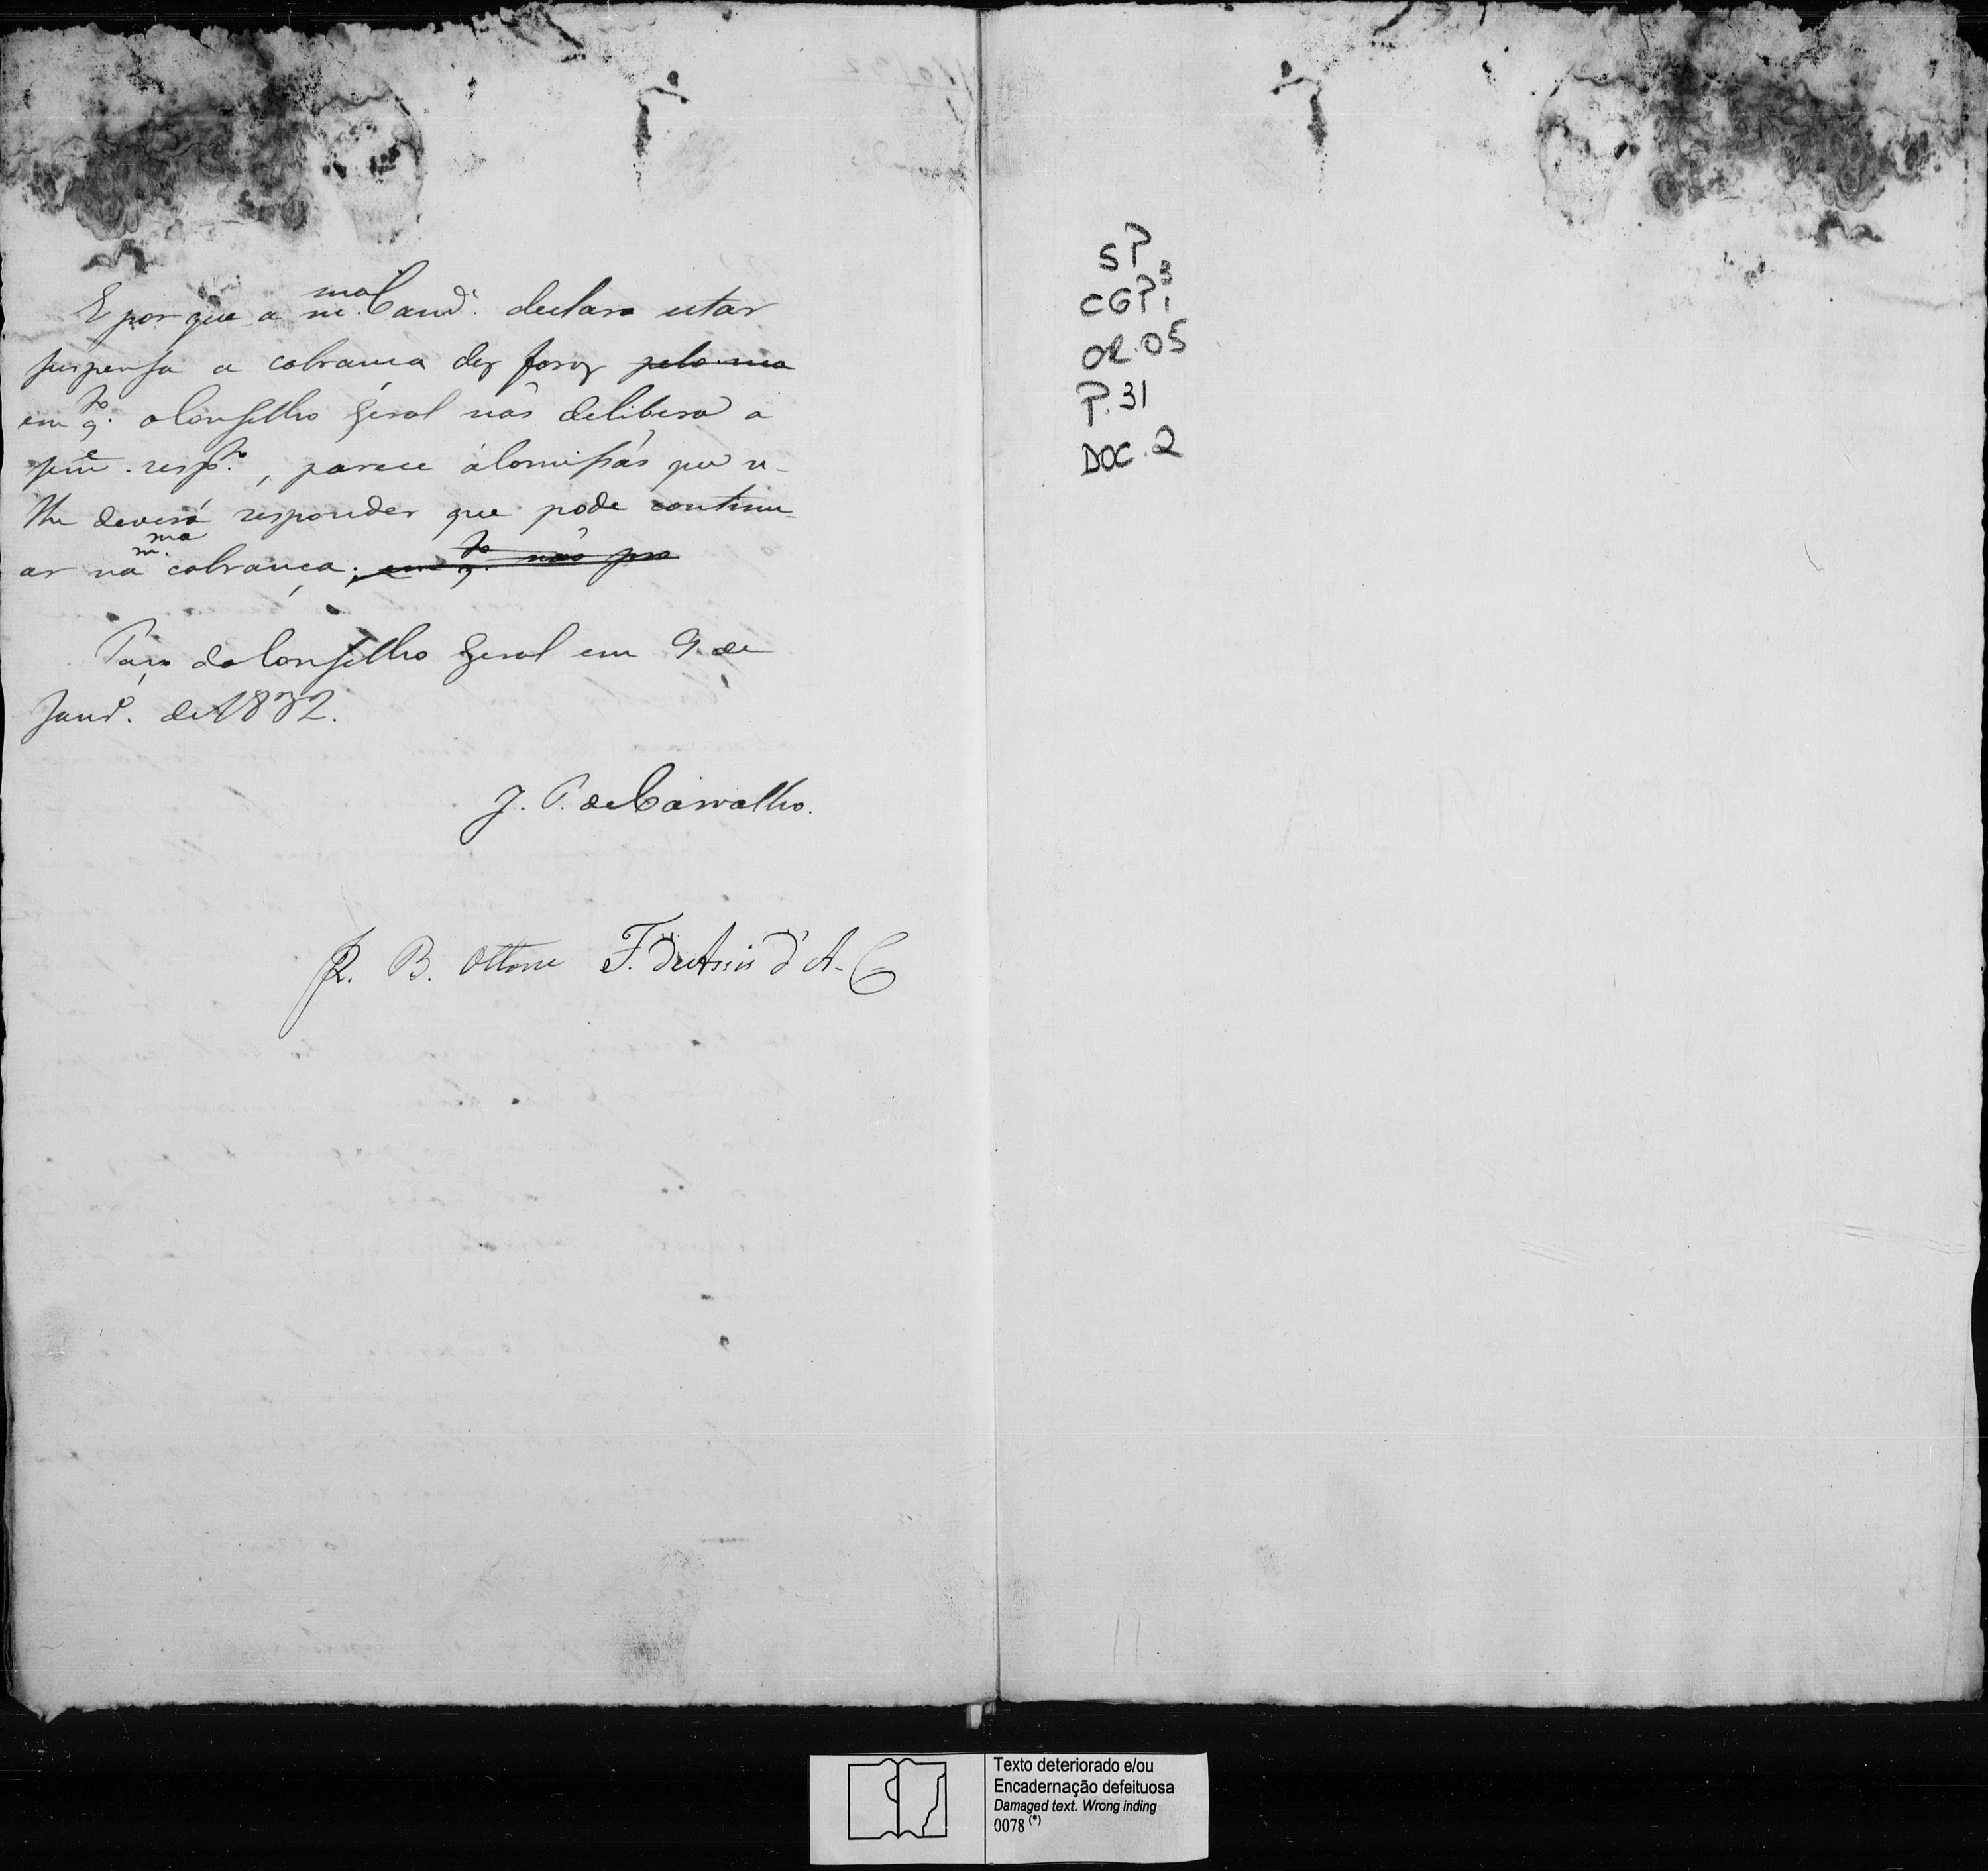 E porque a m.ma Cam.ª declara estar
suspensa a cobrança dos foros pela ma
em q.to o Conselho Geral não delibera a
sem.e resp.to, parece á Comissão que se
lhe deverá responder que póde continu-
ar na m.ma cobrança; em q.to não pro
Paço do Conselho Geral em 9 de
Janr.º de 1832.
J. P. de Carvalho.
J. B. Ottoni F. de Assis d'A. C
SP
CGP1 3
OR.05
P.31
DOC.2
Texto deteriorado e/ou
Encadernação defeituosa
Damaged text. Wrong inding
0078 (*)